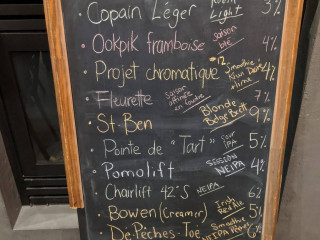 • Copain Léger Light 3%
• Ookpik framboise saison blé 4%
• Projet chromatique #12 Smoothie Kiwi + lime 4%
• Fleurette saison affinée en foudre 7%
• St-Ben Blonde Belge Brett 9%
• Pointe de "Tart" Sour IPA 5%
• Pomolift SESSION NEIPA 4%
• Chairlift 42°S NEIPA 6%
• Bowen (Creamer) Irish Red Ale 5%
• De-Pêches-Toe Smoothie 6%